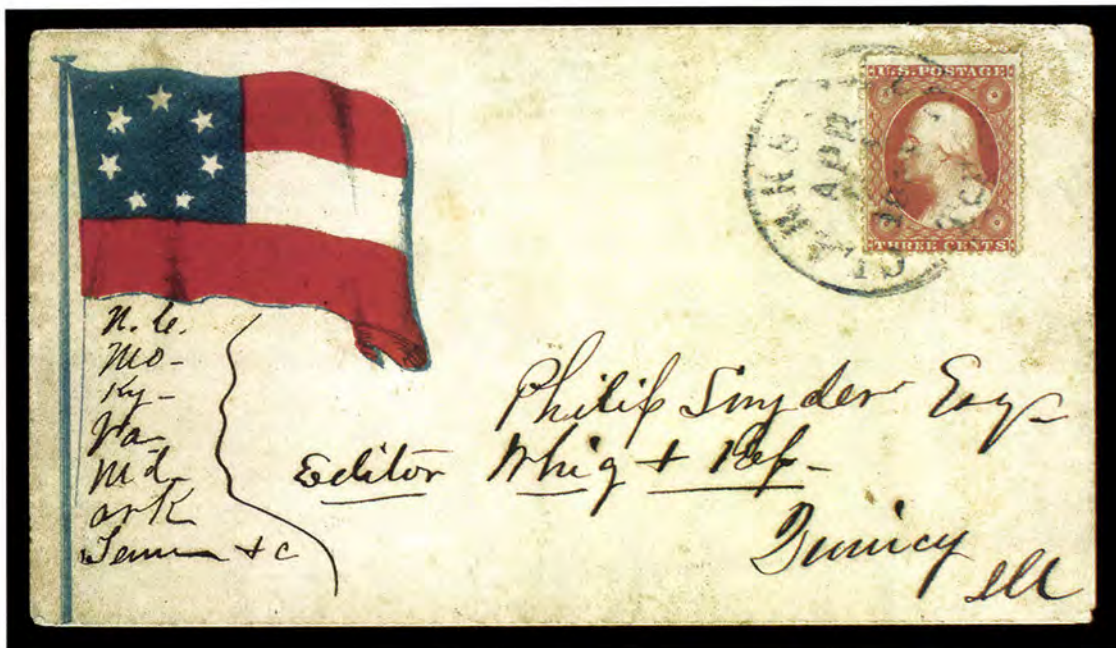 U.S. POSTAGE
THREE CENTS
CLARKS
APR
N. C.
Mo-
Ky-
Va-
Md-
ark
Tenn + c
Philip Snyder Esq
Editor Whig + Rep-
Quincy
Ill